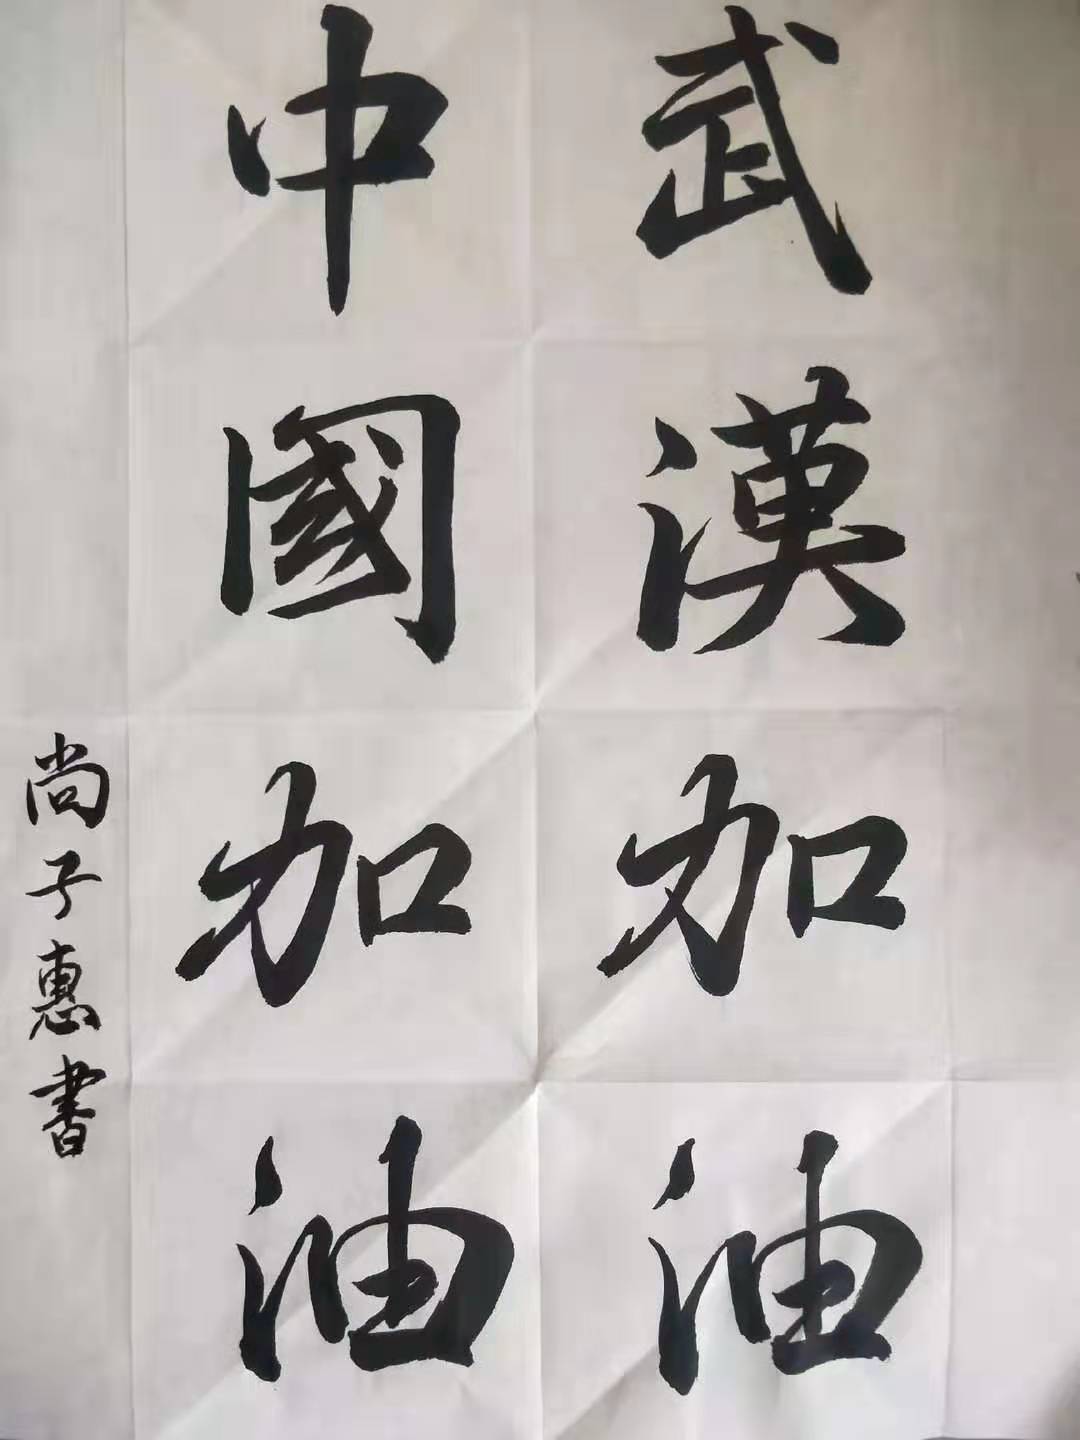 武漢加油
中國加油
尚子惠書